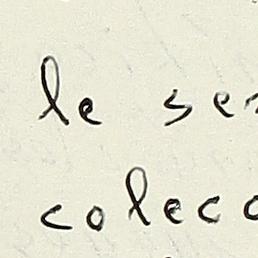 le se
colec